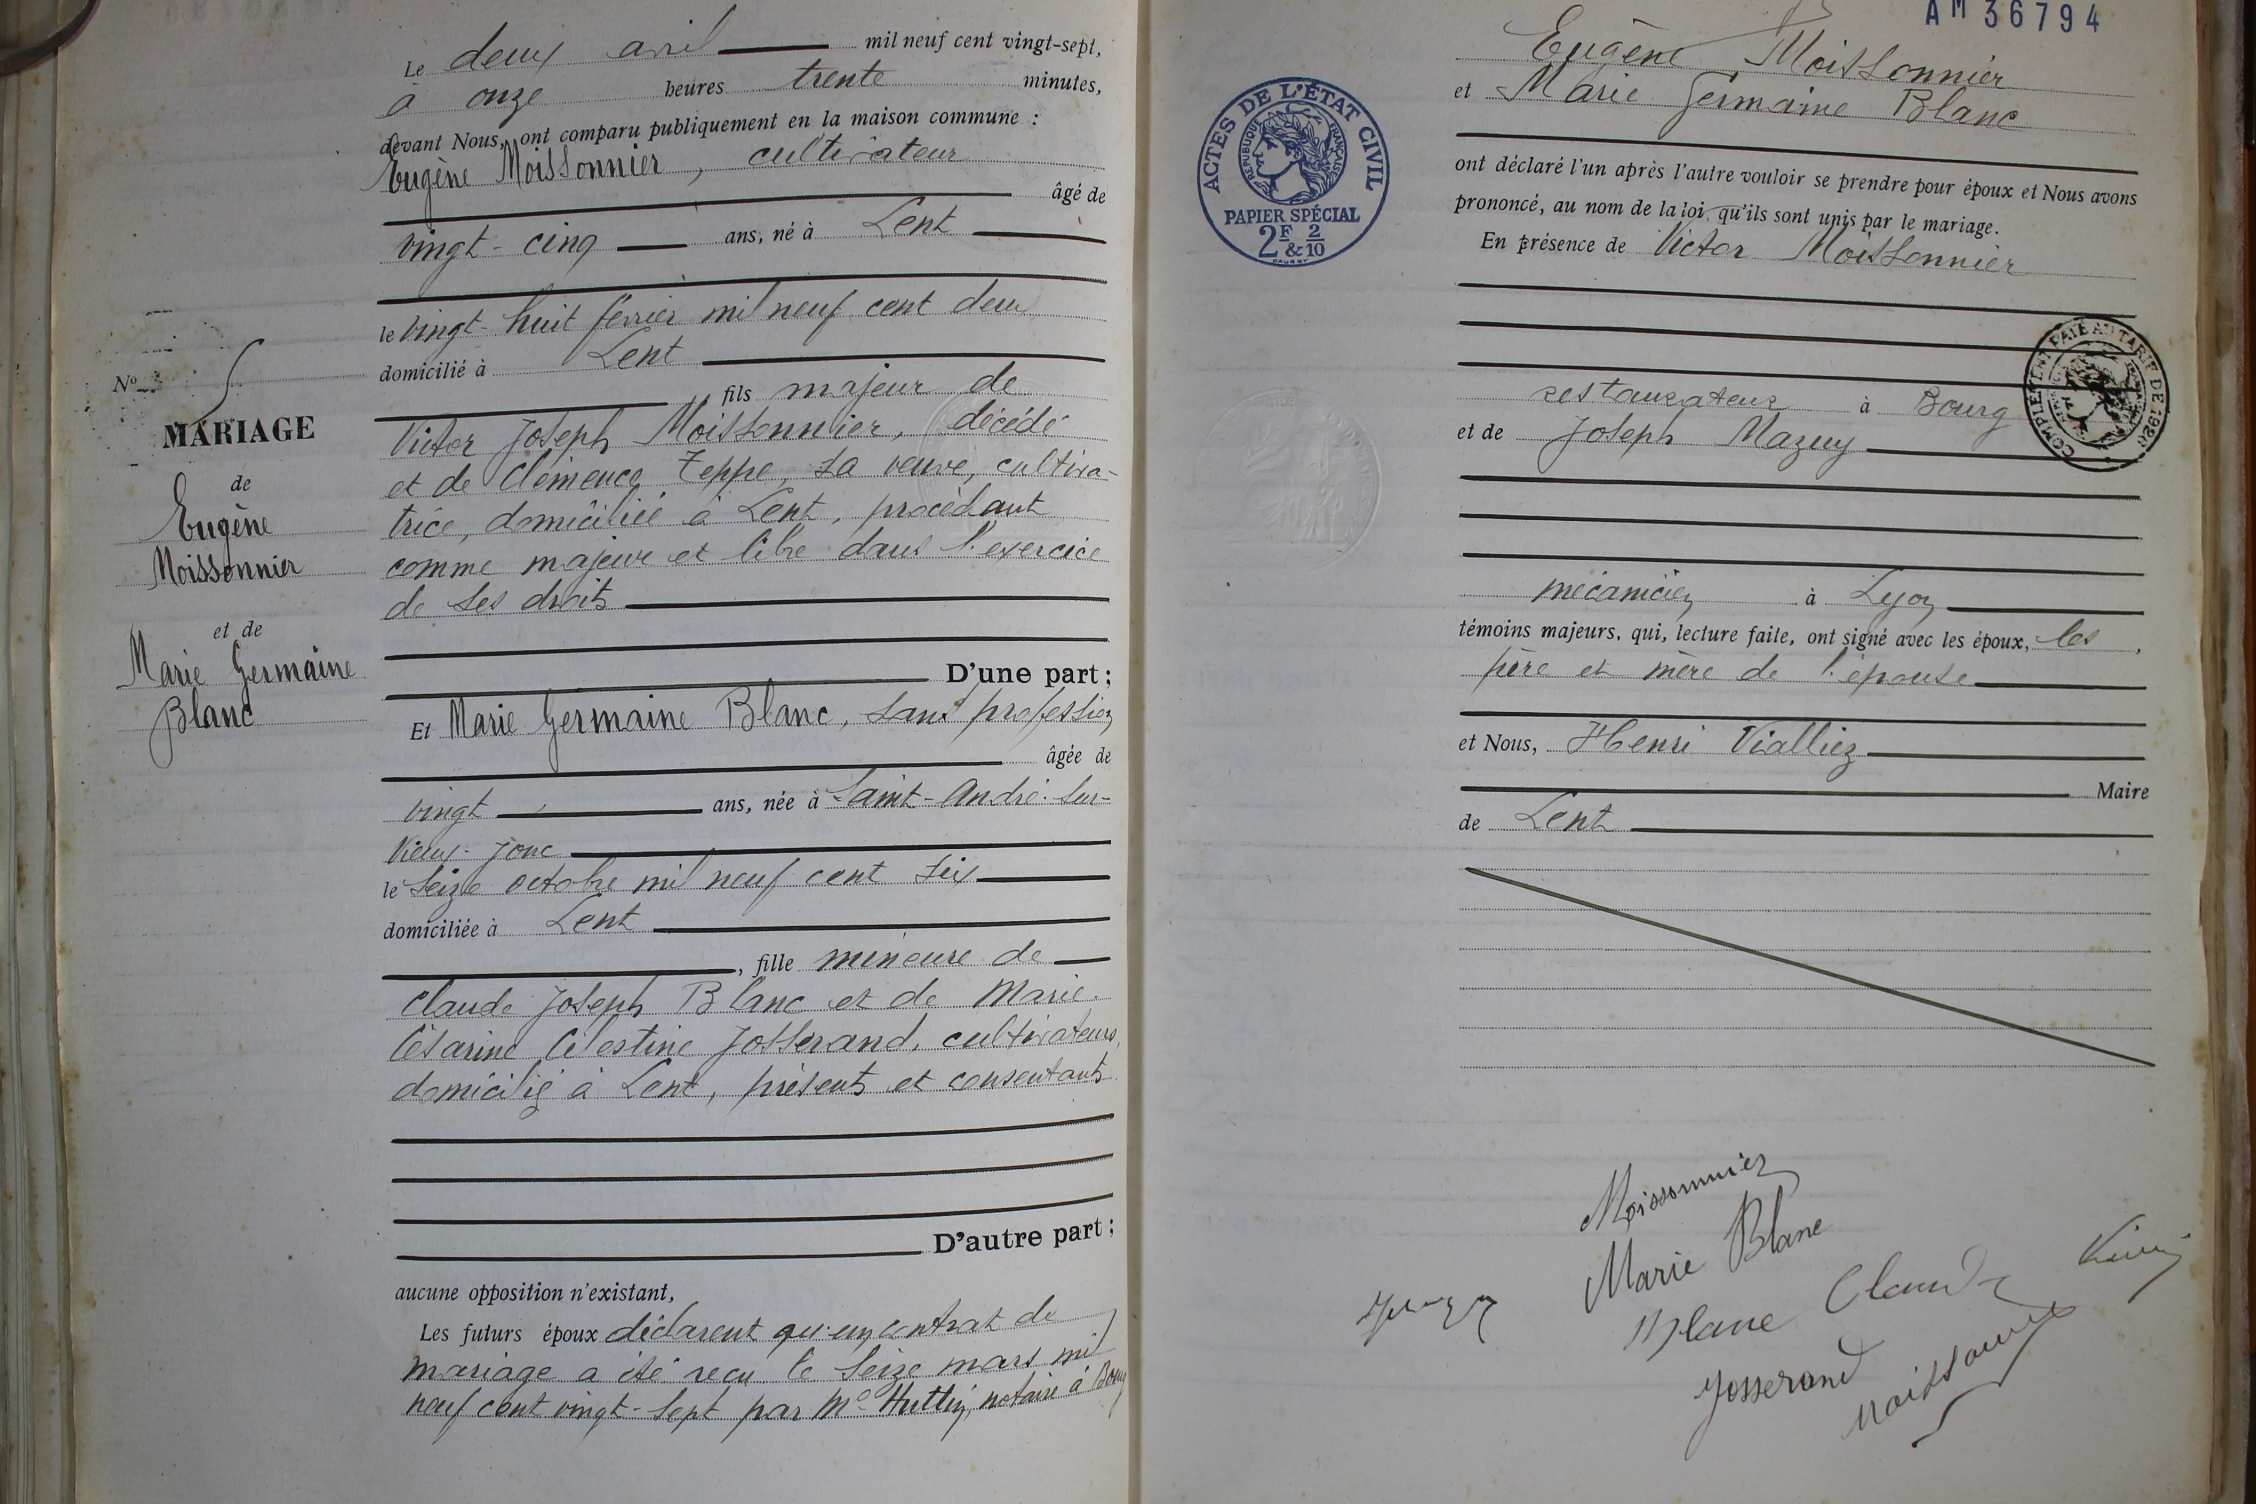 Le deux avril mil neuf cent vingt-sept,
à onze heures trente minutes,
devant Nous, ont comparu publiquement en la maison commune :
Eugène Moissonnier, cultivateur
âgé de
vingt-cinq ans, né à Lent
le vingt-huit février mil neuf cent deux
domicilié à Lent
fils majeur de
Victor Joseph Moissonnier, décédé
et de Clémence Teppe, sa veuve, cultiva-
trice, domiciliée à Lent, procédant
comme majeur et libre dans l'exercice
de ses droits
D'une part ;
Et Marie Germaine Blanc, sans profession
âgée de
vingt ans, née à Saint-André-sur-
Vieux-Jonc
le seize octobre mil neuf cent six
domiciliée à Lent
, fille mineure de
Claude Joseph Blanc et de Marie
Césarine Célestine Josserand, cultivateurs,
domiciliés à Lent, présents et consentants
D'autre part ;
aucune opposition n'existant,
Les futurs époux déclarent qu'un contrat de
mariage a été reçu le seize mars mil
neuf cent vingt-sept par Me Huttin, notaire à Bourg
No 5
MARIAGE
de
Eugène
Moissonnier
et de
Marie Germaine
Blanc
AM 36794
Eugène Moissonnier
et Marie Germaine Blanc
ont déclaré l'un après l'autre vouloir se prendre pour époux et Nous avons
prononcé, au nom de la loi, qu'ils sont unis par le mariage.
En présence de Victor Moissonnier
restaurateur à Bourg
et de Joseph Mazuy
mécanicien à Lyon
témoins majeurs, qui, lecture faite, ont signé avec les époux, les
père et mère de l'épouse
et Nous, Henri Viallier
Maire
de Lent
ACTES DE L'ÉTAT CIVIL
RÉPUBLIQUE FRANÇAISE
PAPIER SPÉCIAL
2F & 2/10
COMPLÉMENT PAYÉ AU TARIF DE 1926
Moissonnier
Marie Blanc
Blanc Claude
Josserand
Moissonnier